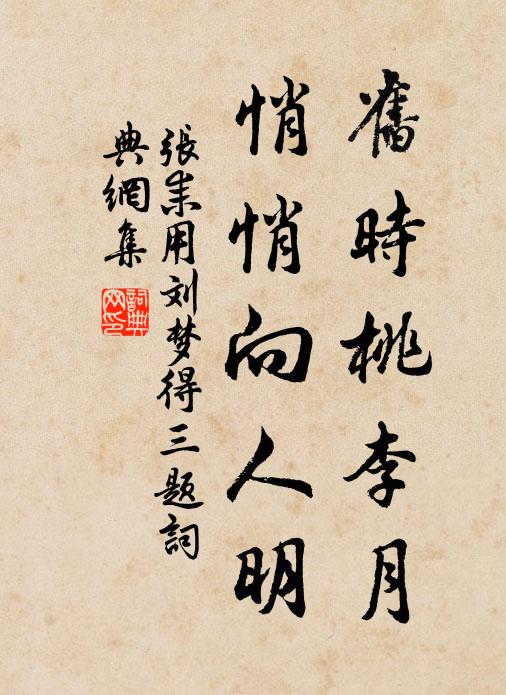 舊時桃李月
悄悄向人明
張耒用刘梦得三题詞
典網集
詞典网印